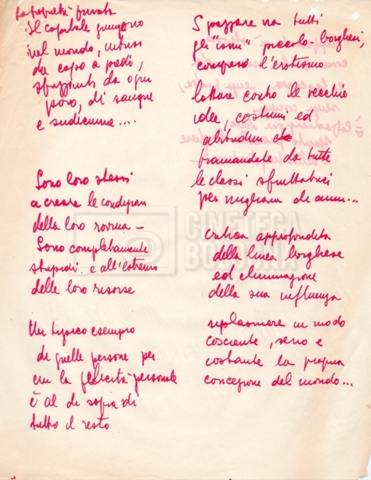 La proprietà privata
Il capitale giungono
nel mondo, intrisi
da capo a piedi,
sprizzanti da ogni
poro, di sangue
e sudiciume....
Sono loro stessi
a creare le condizioni
della loro rovina -
Sono completamente
stupidi e all'estremo
delle loro risorse
Un tipico esempio
di quelle persone per
cui la felicità personale
è al di sopra di
tutto il resto
Spazzare via tutti
gli "ismi" piccolo-borghesi,
compreso l'erotismo
lottare contro le vecchie
idee, costumi ed
abitudini
tramandate da tutte
le classi sfruttatrici
per migliaia di anni...
critica approfondita
della linea borghese
ed eliminazione
della sua influenza
riplasmare in modo
cosciente, serio e
costante la propria
concezione del mondo...
CINETECA
BOLOGNA